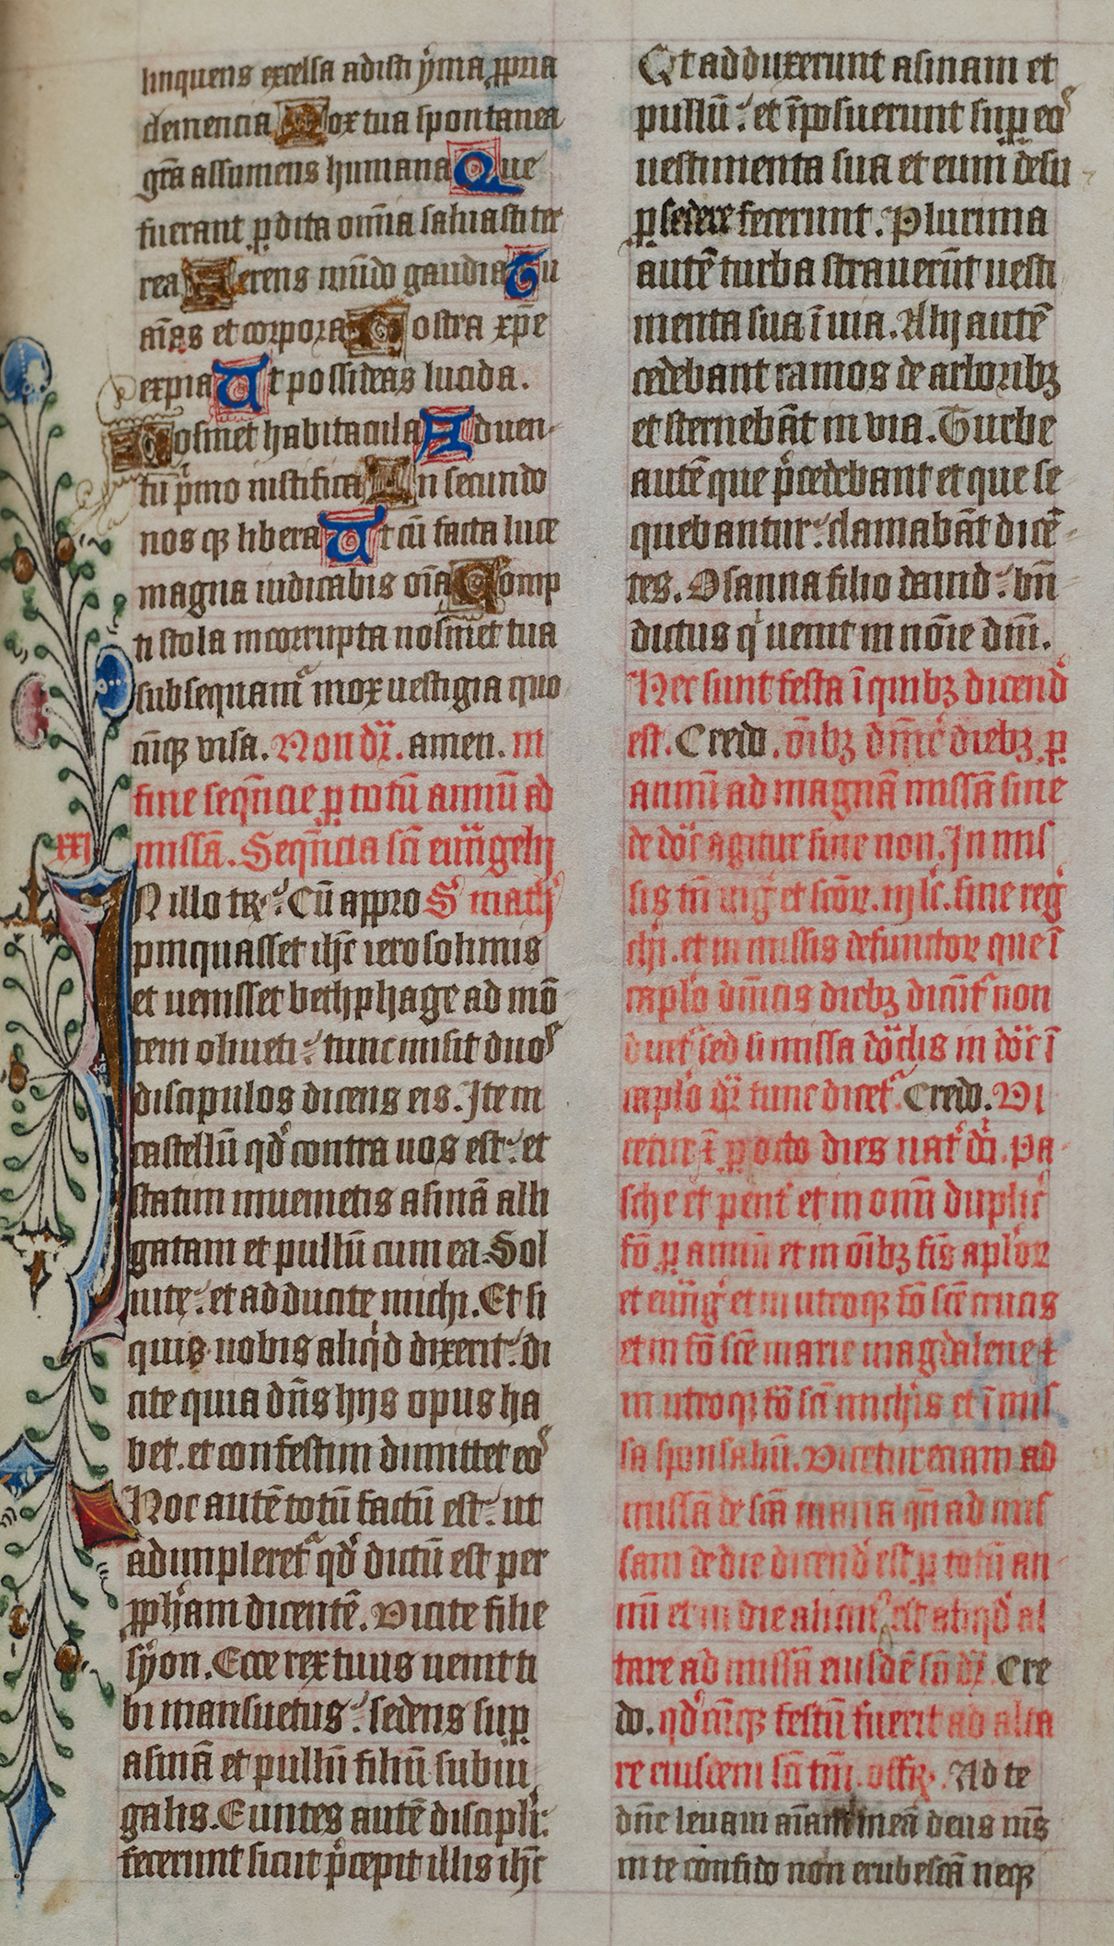 linquens excelsa adisti yma ꝓpria
clemencia Mox tua spontanea
gr̄a assumens humana Que
fuerant ꝑdita om̄ia saluasti ter
rea Ferens mūdo gaudia Tu
aīas et corpora Nostra xp̄e
expia Ut possideas lucida.
Nosmet habitacula Aduen
tu pͥmo iustifica In secundo
nos qꝫ libera Ut cū facta luce
magna iudicabis oīa Comp
ti stola incorrupta nosmet tua
subsequamr̄ mox uestigia quo
cūqꝫ visa. Non dr̄. amen. in
fine seqn̄cie ꝑ totū annū ad
missā. Seqn̄cia sc̄i euūgelij
In illo tꝑr̄. Cū appro S' math'
pinquasset ihc̄ ierosolimis
et uenisset bethphage ad mō
tem oliueti: tunc misit duos
discipulos dicens eis. Ite in
castellū qd' contra uos est: et
statim inuenietis asinā alli
gatam et pullū cum ea. Sol
uite: et adducite michi. Et si
quis uobis aliqͥd dixerit: di
cite quia dn̄s hijs opus ha
bet. et confestim dimittet eos
Hoc autē totū factū est: ut
adimpleretͬ qd' dictū est per
ꝓph'am dicentē. Dicite filie
syon. Ecce rex tuus uenit ti
bi mansuetus: sedens suꝑ
asinā et pullū filiū subiu
galis. Euntes autē discipl'i:
fecerunt sicut pͤcepit illis ihc̄
Et adduxerunt asinam et
pullū: et īposuerunt suꝑ eos
uestimenta sua et eum desu
ꝑ sedere fecerunt. Plurima
autē turba strauerūt uesti
menta sua ī uia. Alij autē
cedebant ramos de arboribꝫ
et sternebāt in via. Turbe
autē que pͤcedebant et que se
quebantur: clamabāt dicē
tes. Osanna filio dauid: bn̄
dictus qͥ uenit in nōie dn̄i.
Hec sunt festa ī quibꝫ dicend'
est. Credo. oībꝫ dn̄ic' diebꝫ ꝑ
annū ad magnā missā siue
de dōr̄ agitur siue non. In mis
sis tn̄ uig' et scōꝝ. iij lc̄. sine reg'
chi. et in missis defunctoꝝ que ī
capl'o dn̄icis diebꝫ dicūtͬ non
dicitͬ sed si missa
capl'o dr̄ tunc dicetͬ. Credo. Di
cetur ī ꝑ octo dies nat' dn̄i. Pa
sche et pent' et in omni duplici
fō ꝑ annū et in oībꝫ fīs apl'oꝝ
et euūg' et in utroqꝫ fō sc̄e crucis
et in fō sc̄e marie magdalene ⁊
in utroqꝫ fō sc̄i mich'is et ī mis
sa sponsaliū. Dicetur eciam ad
missā de sc̄a maria qn̄ ad mis
sam de die dicend' est ꝑ totū an
nū et in die alicuiͥ est aliqͥd al
tare ad missā eiusdē sc̄i dr̄. Cre
do. qd'cūqꝫ festū fuerit ad alta
re eiusdem sc̄i tn̄. offr̄. Ad te
dn̄e leuaui aīam meā deus m̄s
in te confido non erubescā neqꝫ